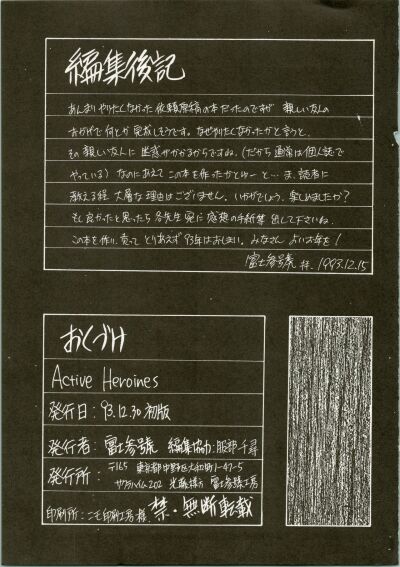 編集後記
あんまりやりたくなかった依頼原稿の本だったのですが 親しい友人の
おかげで何とか完成しそうです。なぜやりたくなかったかと言うと、
その親しい友人に迷惑がかかるからですね。(だから通常は個人誌で
やっている) なのにあえてこの本を作ったかとゆーと…ま、読者に
教える程 大層な理由はございません。いかがでしょう、楽しめましたか?
もし良かったと思ったら 各先生宛に感想の手紙等 出して下さいね。
この本を作り、売って とりあえず'93年はおしまい。みなさん よいお年を!
富士参号 拝. 1993.12.15
おくづけ
Active Heroines
発行日:93.12.30 初版
発行者:富士参號 編集協力:服部千尋
発行所:〒165 東京都中野区大和町1-47-5
サクラハイム202 様方 富士参號工房
印刷所:ニモ印刷工房 様. 禁・無断転載